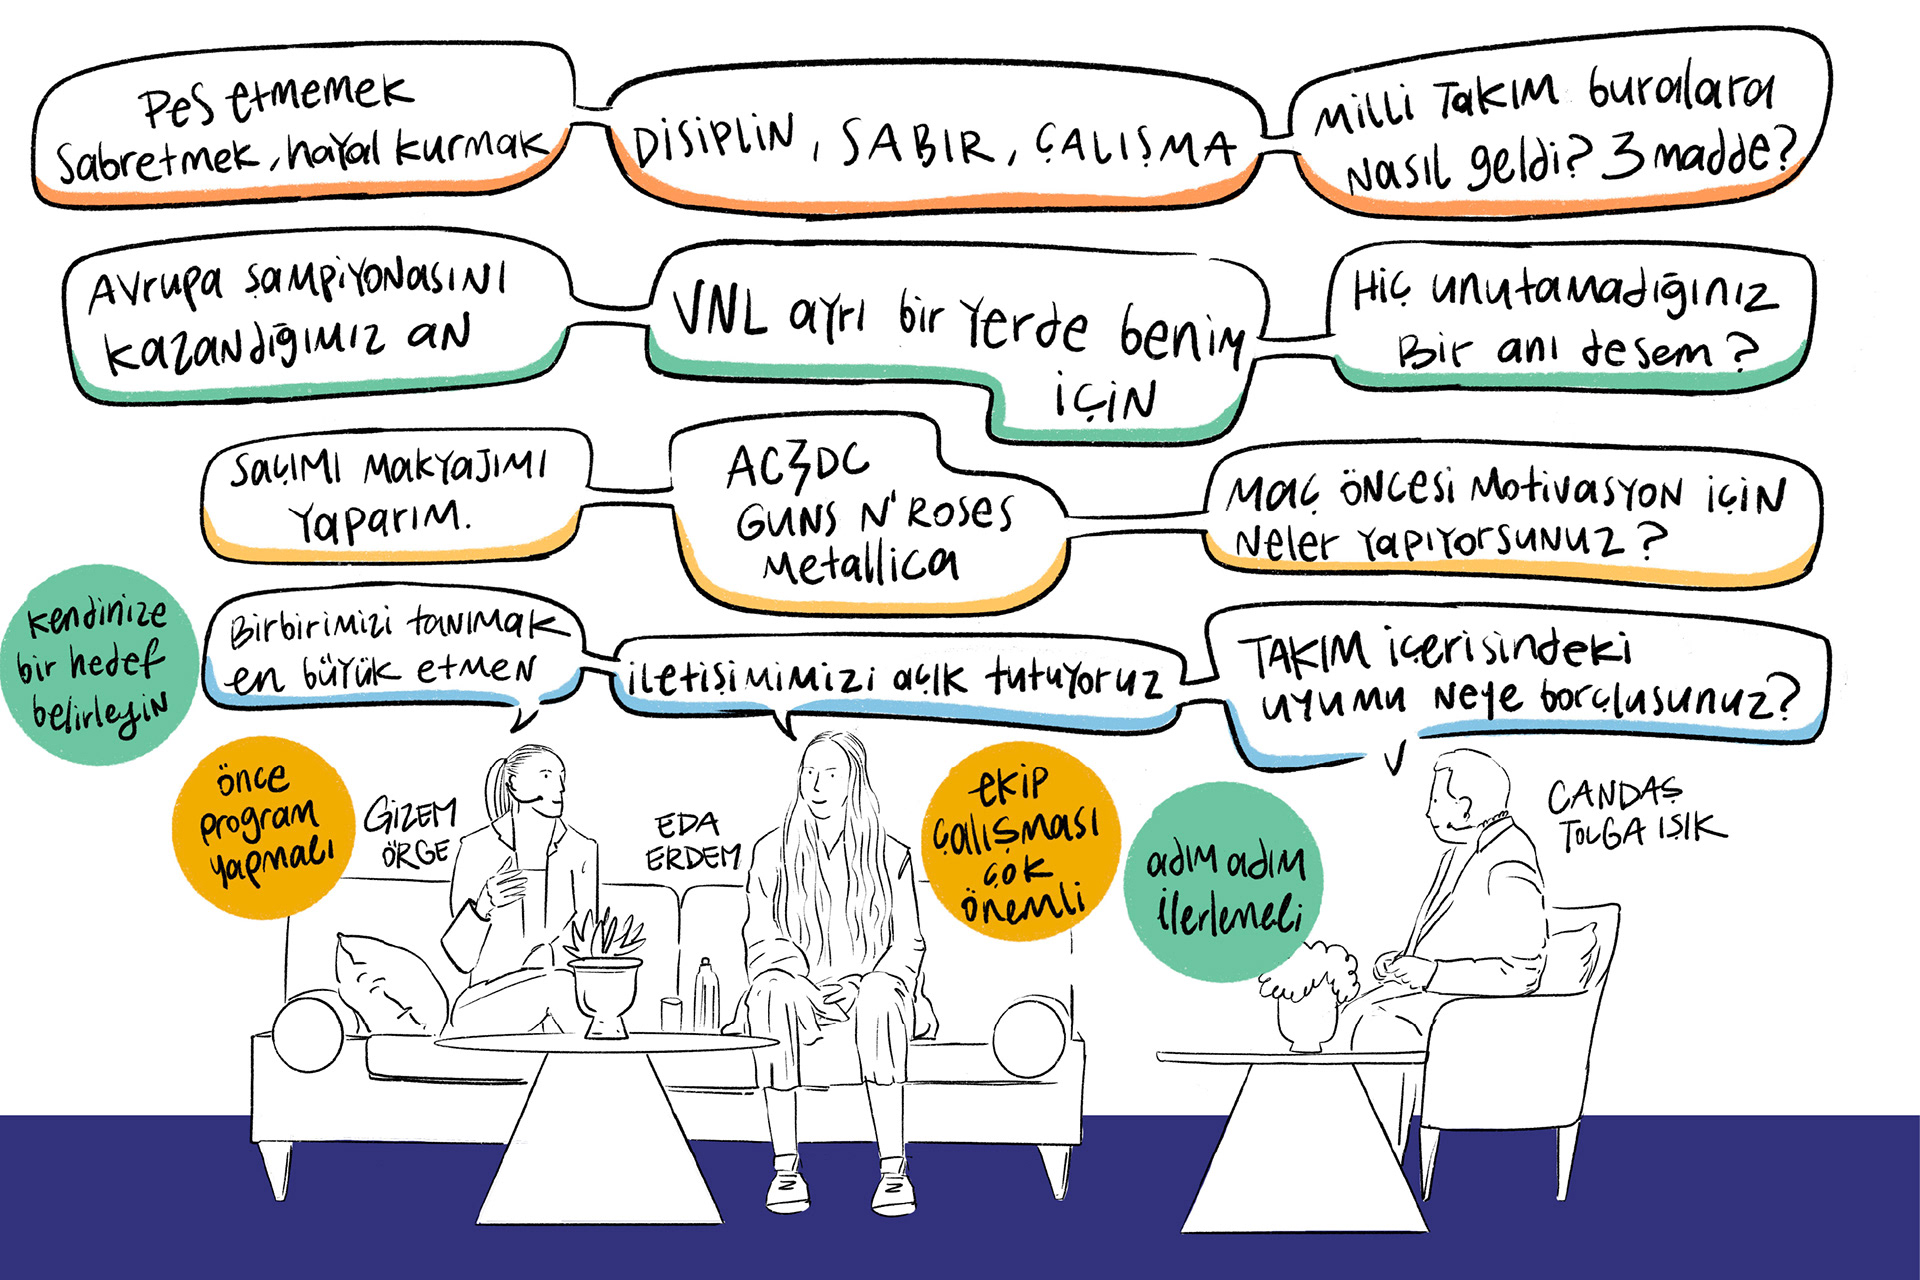 Pes etmemek
sabretmek, hayal kurmak
DİSİPLİN, SABIR, ÇALIŞMA
Milli Takım buralara
nasıl geldi? 3 madde?
Avrupa şampiyonasını
kazandığımız an
VNL ayrı bir yerde benim
için
Hiç unutamadığınız
Bir anı desem?
Saçımı makyajımı
yaparım.
AC⚡DC
GUNS N' ROSES
Metallica
Maç öncesi motivasyon için
neler yapıyorsunuz?
Birbirimizi tanımak
en büyük etmen
iletişimimizi açık tutuyoruz
TAKIM içerisindeki
uyumu neye borçlusunuz?
kendinize
bir hedef
belirleyin
önce
program
yapmalı
GİZEM
ÖRGE
EDA
ERDEM
ekip
çalışması
çok
önemli
adım adım
ilerlemeli
CANDAŞ
TOLGA IŞIK